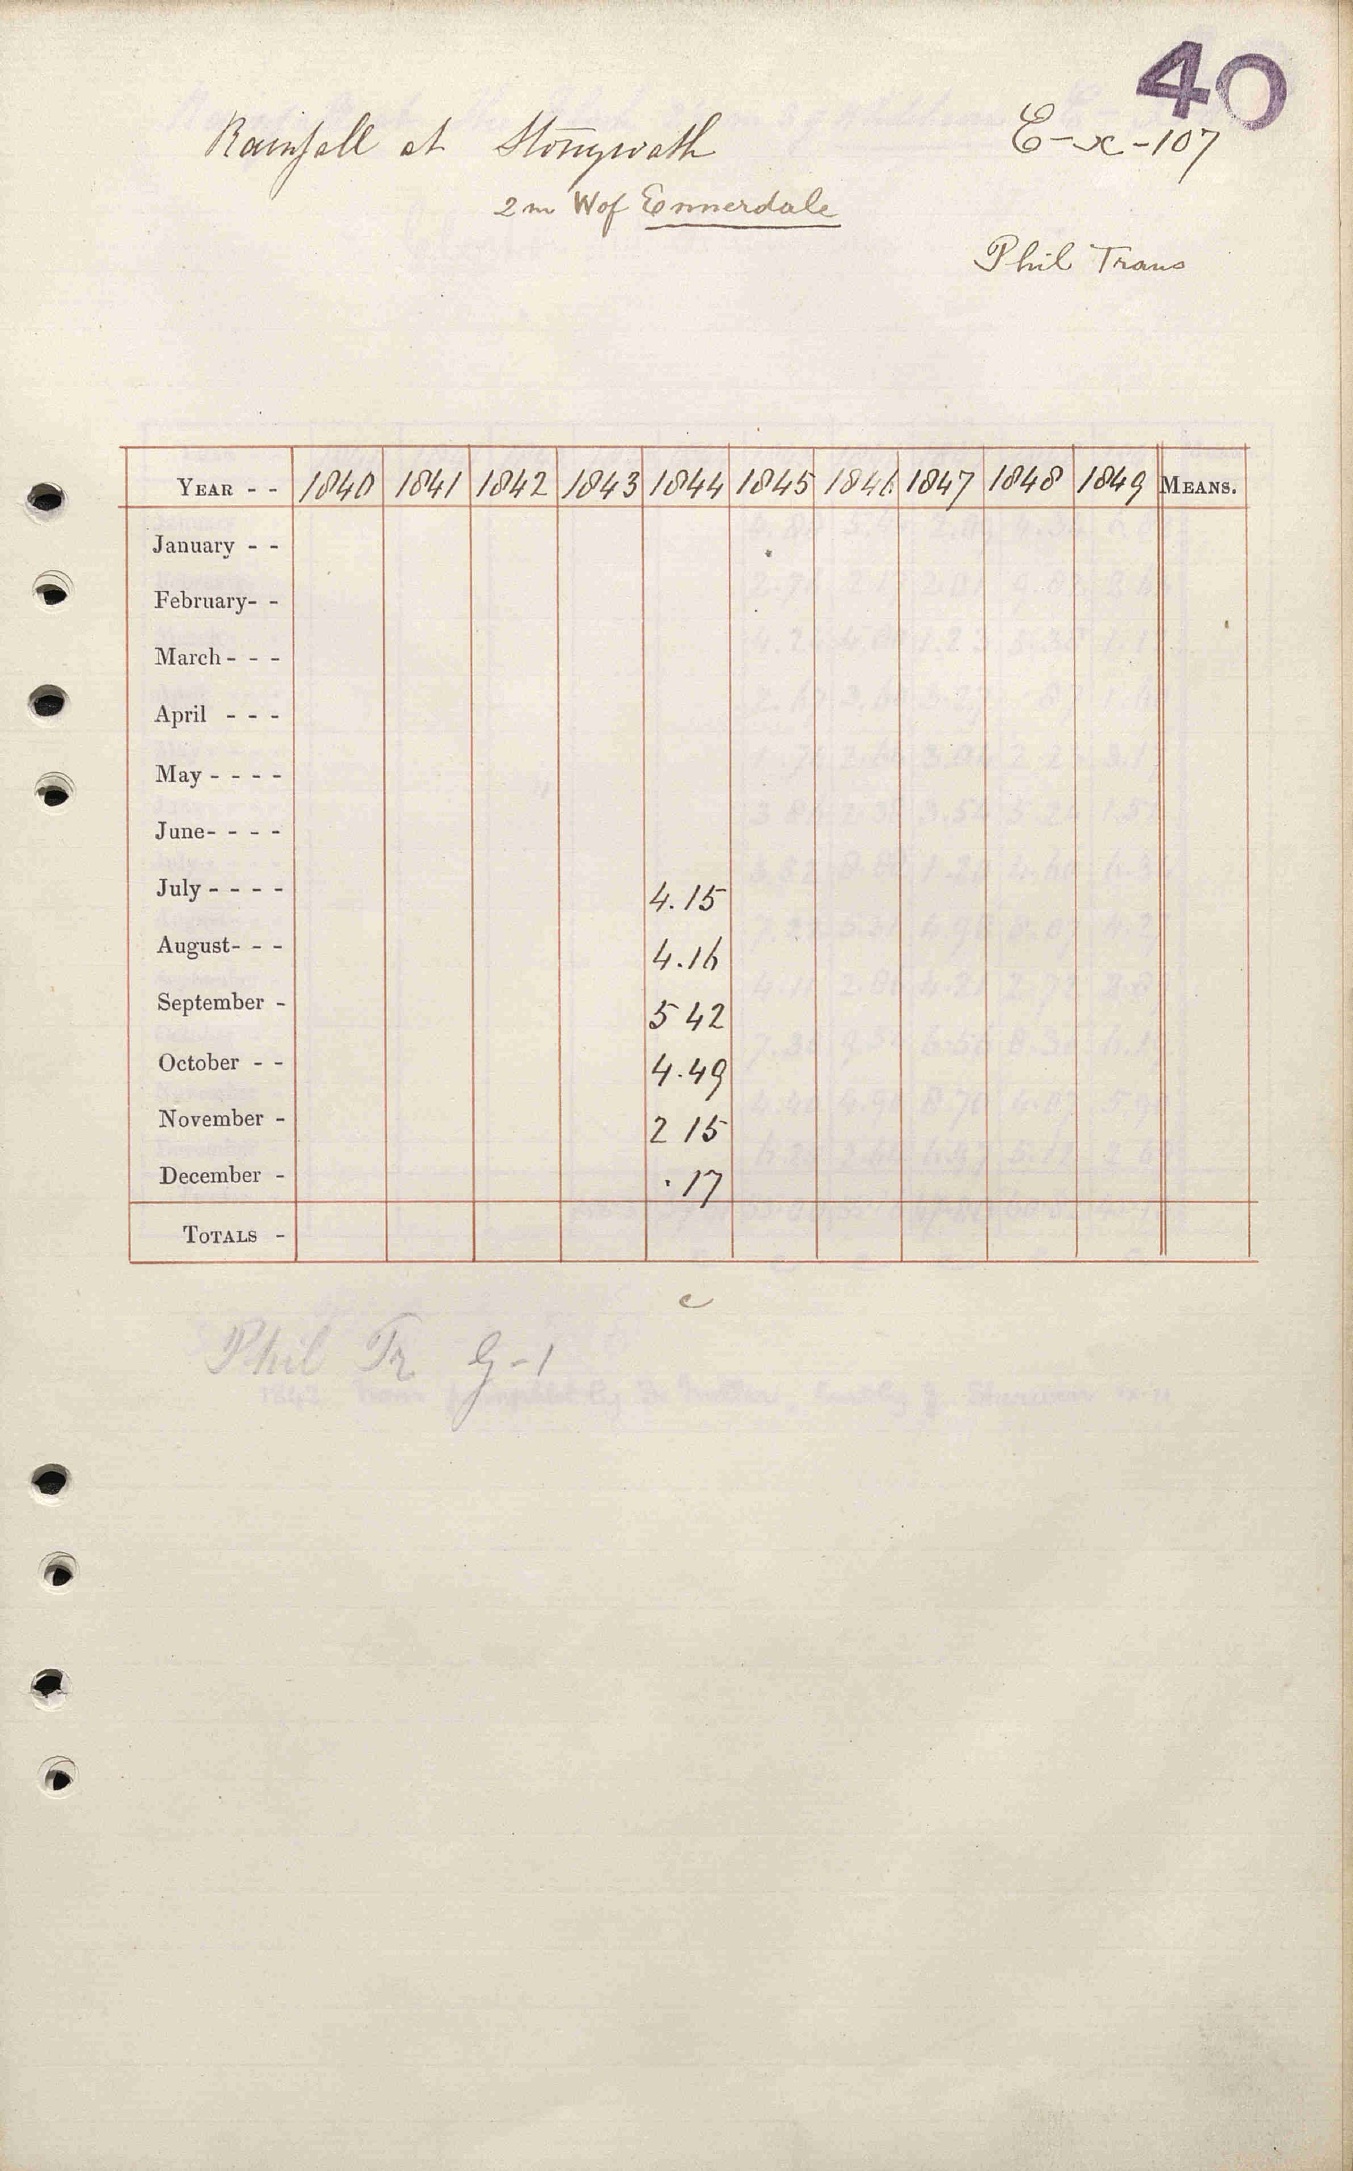 40
Rainfall at Stonywath E-x-107
2 m W of Ennerdale
Phil Trans
YEAR - - 1840 1841 1842 1843 1844 1845 1846 1847 1848 1849 MEANS.
January - -
February- -
March - - -
April - - -
May - - - -
June- - - -
July - - - - 4.15
August- - - 4.16
September - 5 42
October - - 4.49
November - 2 15
December - .17
TOTALS -
c
Phil Tr G-1